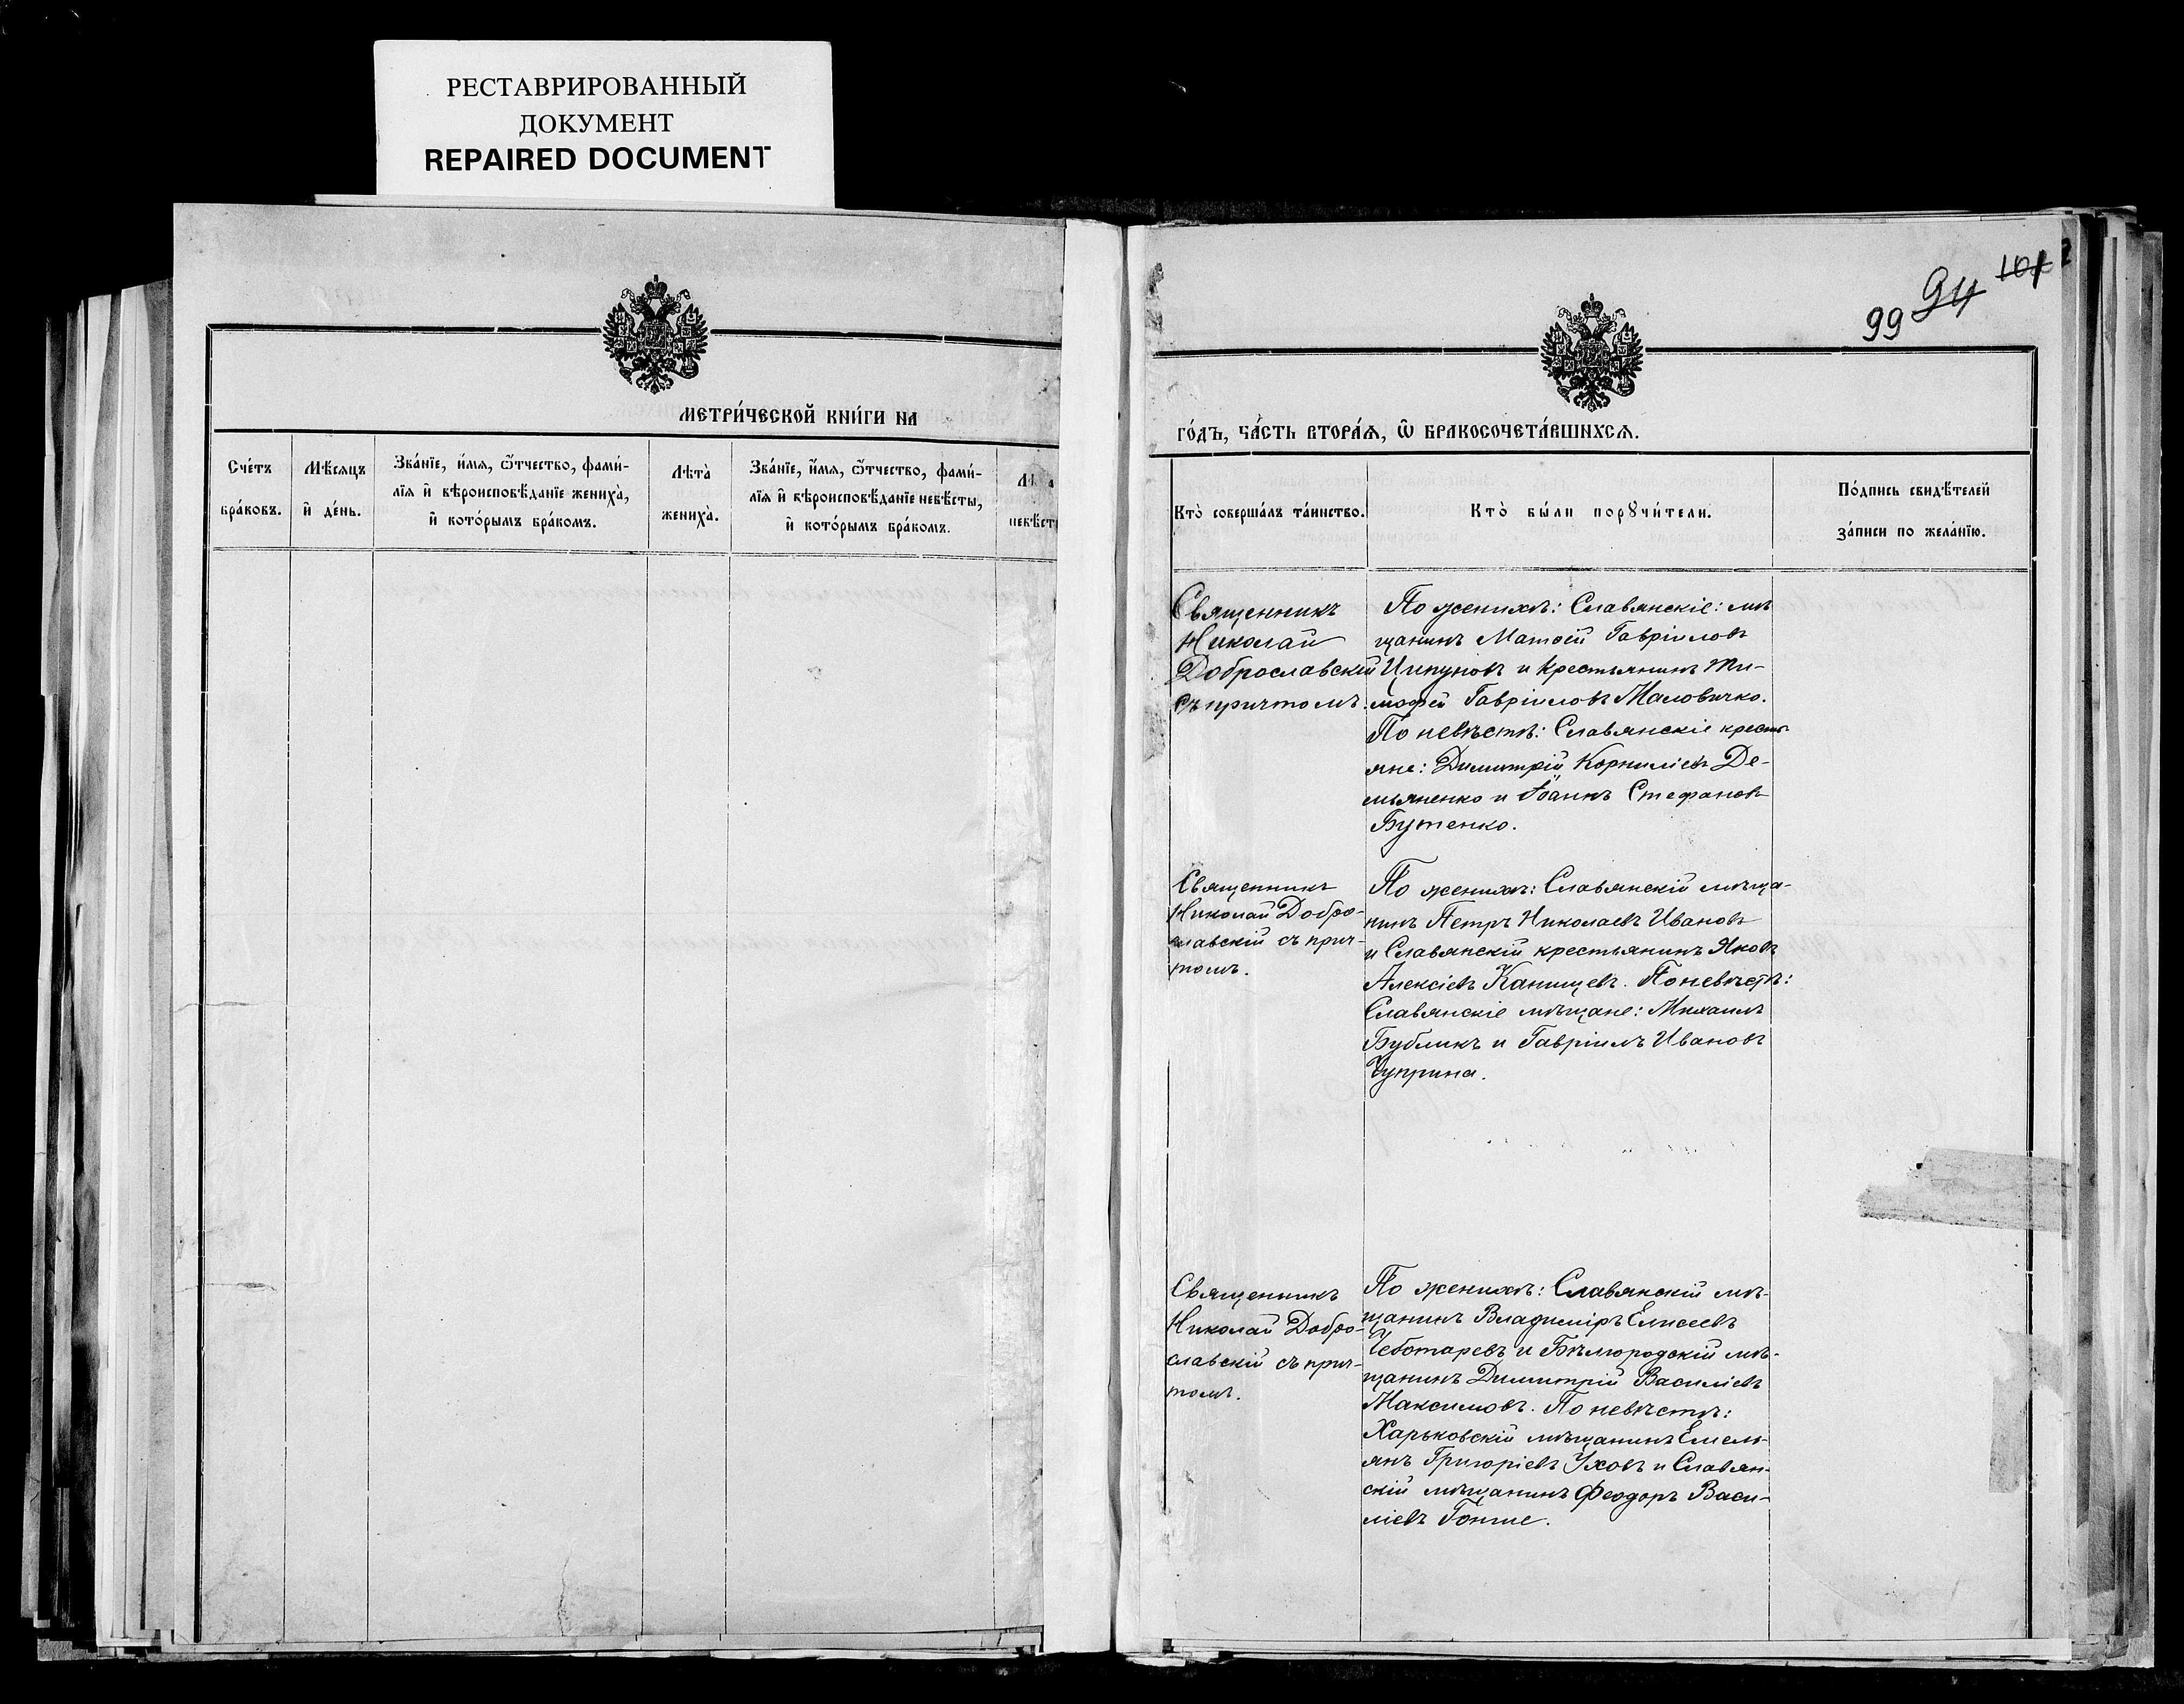 РЕСТАВРИРОВАННЫЙ
ДОКУМЕНТ
REPAIRED DOCUMENT
МЕТРИ́ЧЕСКОЙ КНИ́ГИ НА
Сче́тъ
бра́ковъ.
Мѣ́сяцъ
и҆ де́нь.
Зва́нїе, и҆́мѧ, ѻ҆́тчество, фами́-
лїѧ и҆ вѣроисповѣ́данїе жениха̀,
и҆ кото́рымъ бра́комъ.
Лѣта̀
жениха̀.
Зва́нїе, и҆́мѧ, ѻ҆́тчество, фами́-
лїѧ и҆ вѣроисповѣ́данїе невѣ́сты,
и҆ кото́рымъ бра́комъ.
невѣ́ст
99 94 101
ГО́ДЪ, ЧА́СТЬ ВТОРА́Ѧ, Ѽ БРАКОСОЧЕТА́ВШИХСѦ.
Кто̀ соверша́лъ та́инство.
Кто̀ бы́ли порꙋчи́тели.
По́дпись свидѣ́телей
за́писи по жела́нїю.
Священникъ
Николай
Доброславскій
съ причтомъ.
По женихѣ: Славянскіе: мѣ
щанинъ Матѳей Гавріиловъ
Ципуновъ и крестьянинъ Ти-
мофей Гавріиловъ Маловичко.
По невѣстѣ: Славянскіе кресть
яне: Димитрій Корниліевъ Де-
мьяненко и Іоаннъ Стефановъ
Бутенко.
Священникъ
Николай Добро-
славскій съ прич-
томъ.
По женихѣ: Славянскій мѣща-
нинъ Петръ Николаевъ Ивановъ
и Славянскій крестьянинъ Яковъ
Алексіевъ Канищевъ. По невѣстѣ:
Славянскіе мѣщане: Михаилъ
Бубликъ и Гавріилъ Ивановъ
Чуприна.
Священникъ
Николай Добро-
славскій съ прич-
томъ.
По женихѣ: Славянскій мѣ-
щанинъ Владиміръ Елисеевъ
Чеботаревъ и Бѣлгородскій мѣ-
щанинъ Димитрій Василіевъ
Максимовъ. По невѣстѣ:
Харьковскій мѣщанинъ Емель
янъ Григоріевъ Уховъ и Славян-
скій мѣщанинъ Феодоръ Васи-
ліевъ